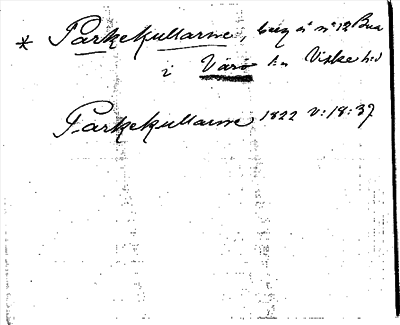 * Parkekullarne, beg å nº 12 Bua
i Värö sn Viske hd
Parkekullarne 1822 V: 18: 37